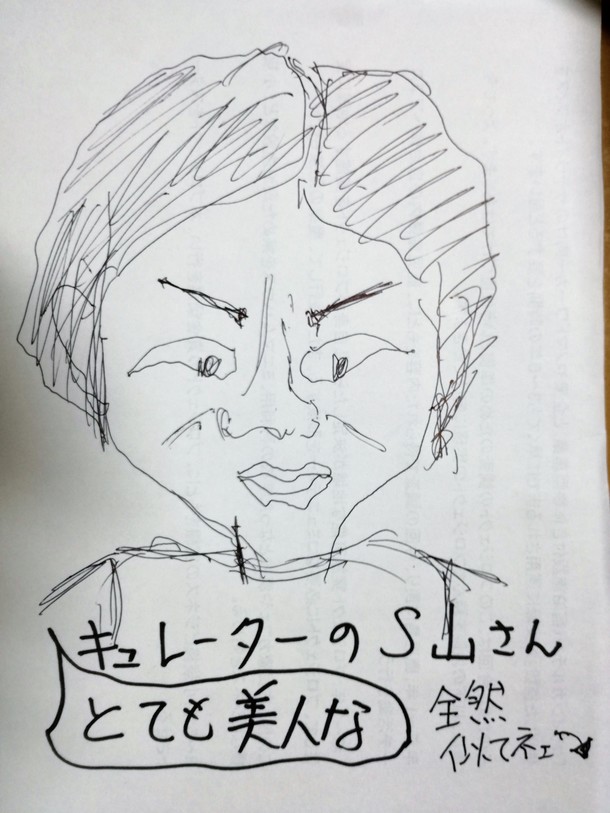 キュレーターのS山さん
とても美人な
全然
似てネェ